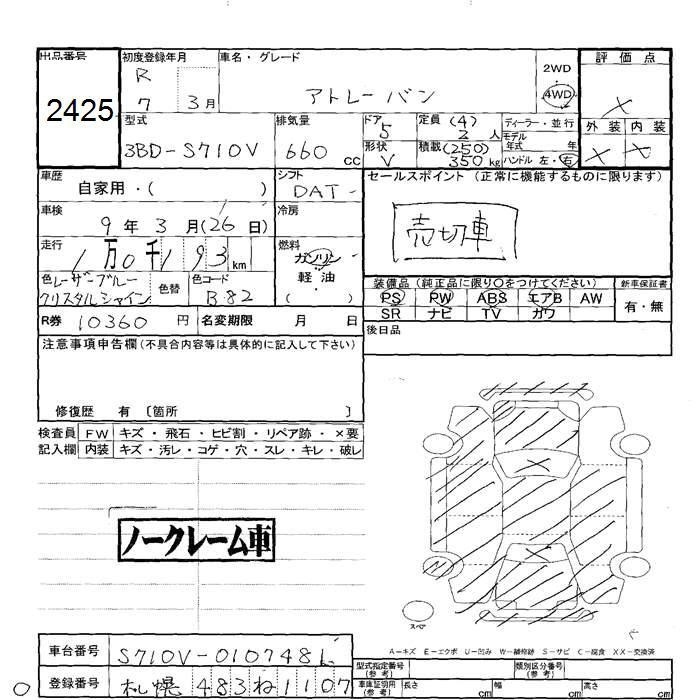 出品番号
2425
初度登録年月
R
7 3月
車名・グレード
アトレーバン
2WD
4WD
評価点
×
外装 内装
× ×
型式
3BD-S710V
排気量
660 cc
ドア
5
形状
V
定員 (4)
2 人
積載 (250)
350 kg
ディーラー・並行
モデル
年式 年
ハンドル 左・右
車歴
自家用・( )
シフト
DAT-
セールスポイント (正常に機能するものに限ります)
売切車
車検
9年 3月(26日)
冷房
走行
1万0千193 km
燃料
ガソリン
軽油
( )
色 レーザーブルー
クリスタルシャイン
色替
色コード
B82
装備品 (純正品に限り○をつけてください)
PS PW ABS エアB AW
SR ナビ TV カワ
新車保証書
有・無
R券 10360 円
名変期限 月 日
後日品
注意事項申告欄 (不具合内容等は具体的に記入して下さい)
修復歴 有 〔箇所 〕
検査員 FW キズ・飛石・ヒビ割・リペア跡・×要
記入欄 内装 キズ・汚レ・コゲ・穴・スレ・キレ・破レ
ノークレーム車
スペア
A-キズ E-エクボ U-凹み W-補修跡 S-サビ C-腐食 XX-交換済
車台番号
登録番号 札幌 483ね1107
型式指定番号
(参考)
類別区分番号
(参考)
車庫証明用
(参考)
長さ cm 幅 cm 高さ cm